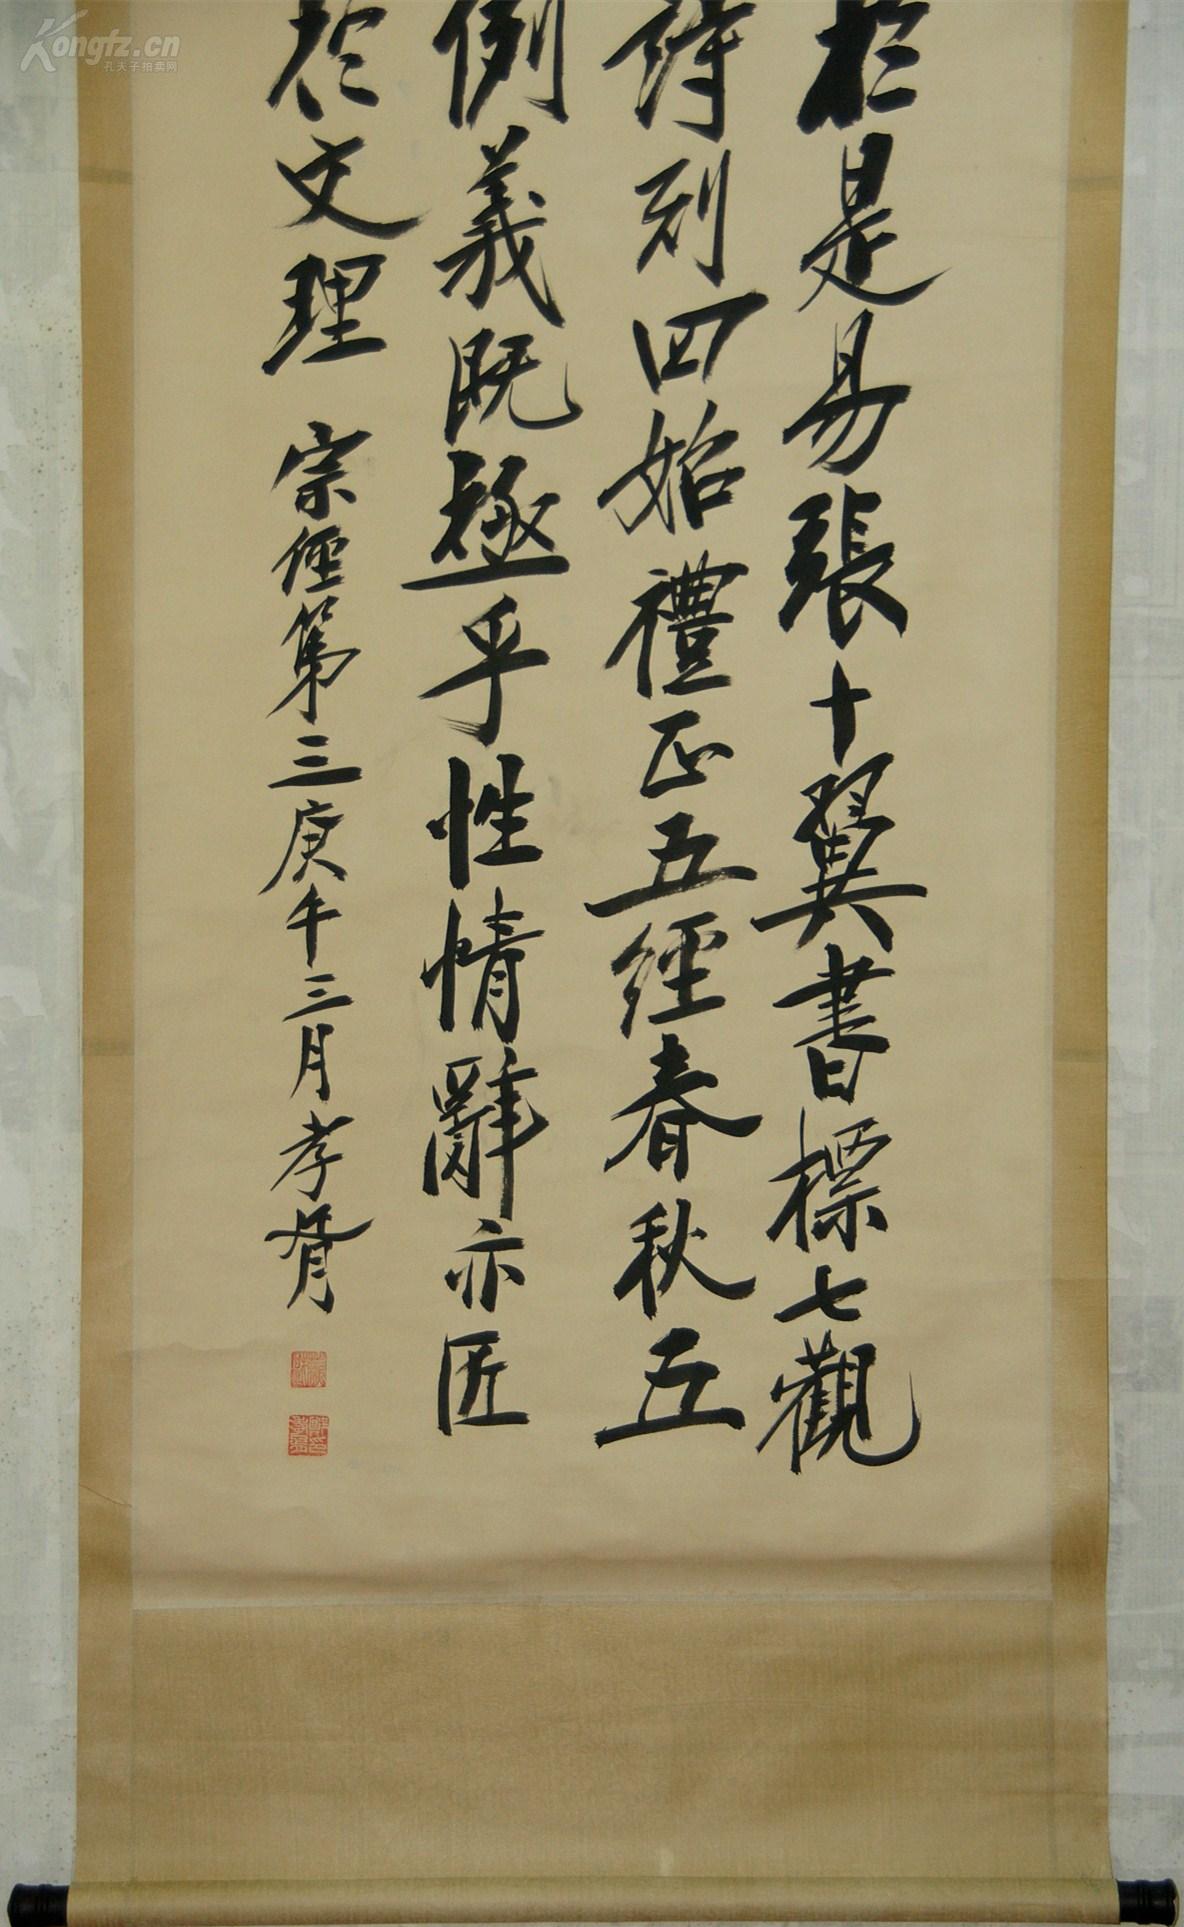 於是易張十翼書標七觀
詩列四始禮正五經春秋五
例義既極乎性情辭亦匠
於文理 宗經第三庚午三月孝胥
Kongfz.cn
孔夫子拍卖网